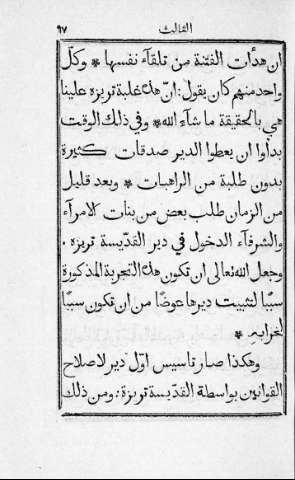 الثالث ٩٧
ان هدأت الفتنة من تلقآء نفسها * وكلّ
واحد منهم كان يقول: انّ هذه غلبة تريزه علينا
هي بالحقيقة ما شآء الله * وفي ذلك الوقت
بدأوا ان يعطوا الدير صدقات كثيرة
بدون طلبة من الراهبات * وبعد قليل
من الزمان طلب بعض من بنات الامرآء
والشرفآء الدخول في دير القدّيسة تريزه .
وجعل الله تعالى ان تكون هذه التجربة المذكورة
سببًا لتثبيت ديرها عوضًا من ان تكون سببًا
لخرابهِ *
وهكذا صار تاسيس اوّل دير لاصلاح
القوانين بواسطة القدّيسة تريزة: ومن ذلك